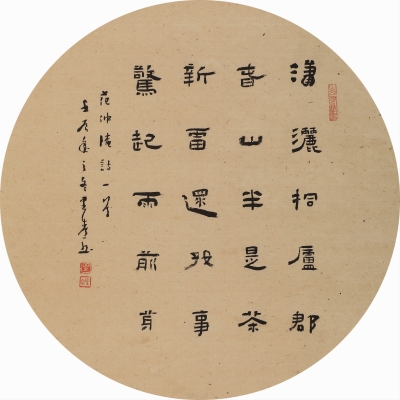 瀟灑桐廬郡
春山半是茶
新雷還好事
驚起雨前芽
范仲淹詩一首